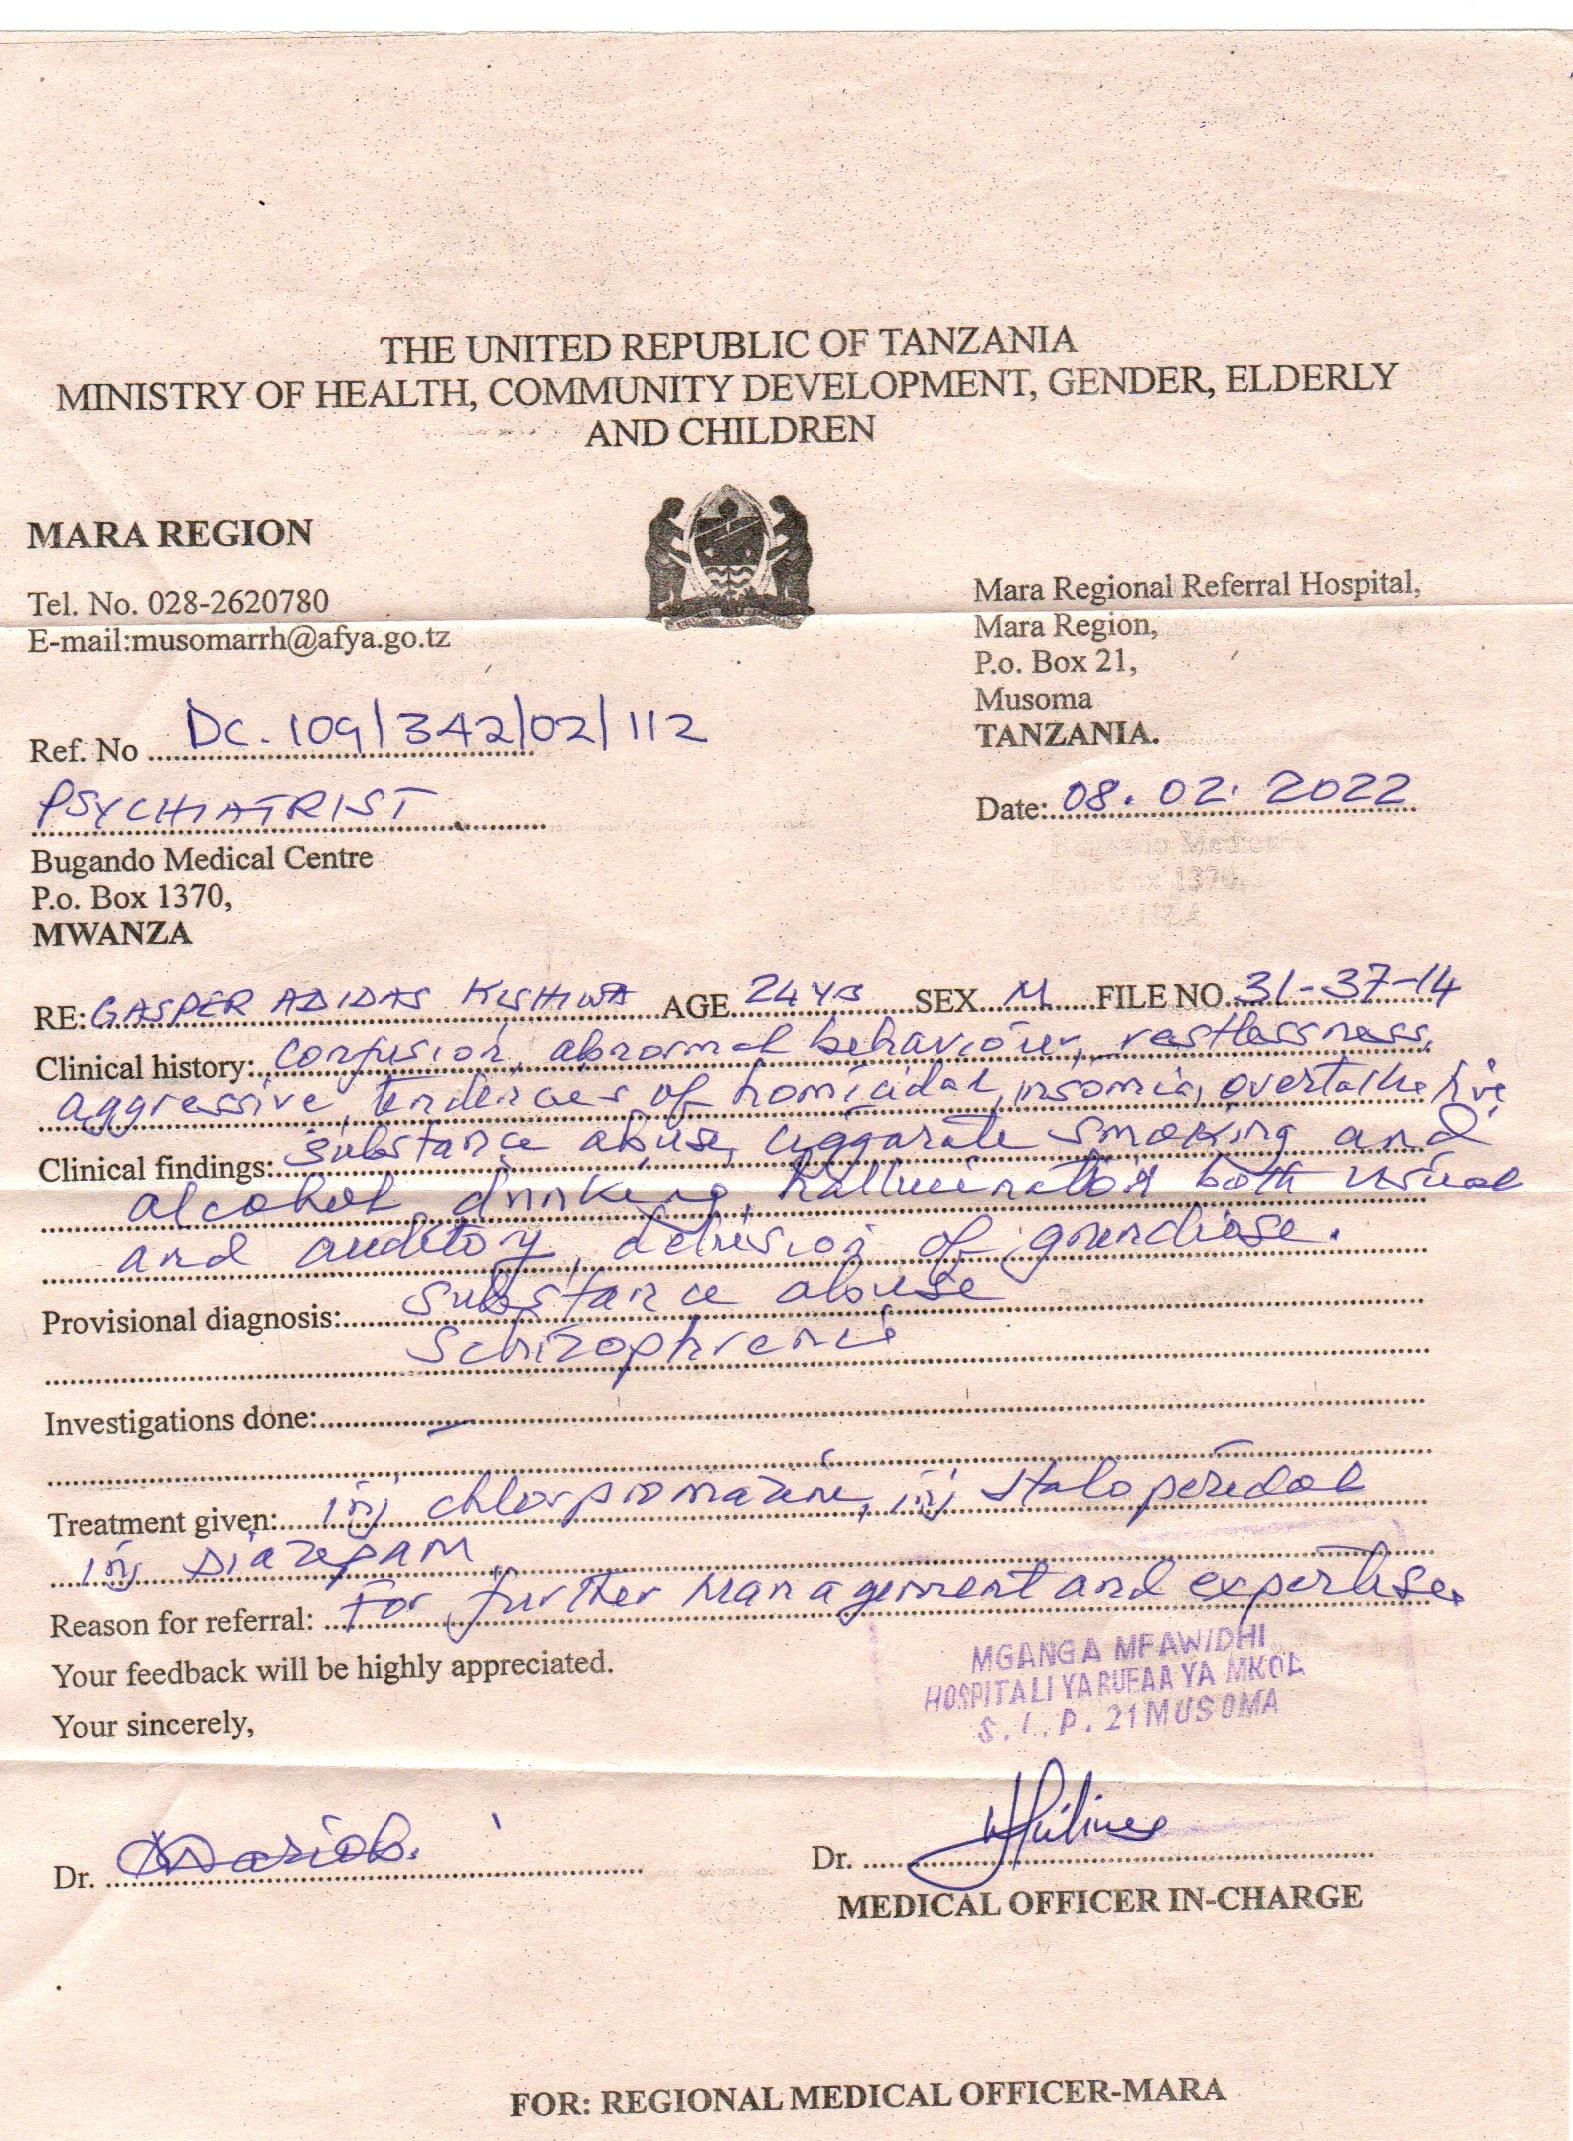 THE UNITED REPUBLIC OF TANZANIA
MINISTRY OF HEALTH, COMMUNITY DEVELOPMENT, GENDER, ELDERLY
AND CHILDREN
MARA REGION
Tel. No. 028-2620780
E-mail:musomarrh@afya.go.tz
Mara Regional Referral Hospital,
Mara Region,
P.o. Box 21,
Musoma
TANZANIA.
Ref. No DC.109/342/02/112
Date: 08.02.2022
PSYCHIATRIST
Bugando Medical Centre
P.o. Box 1370,
MWANZA
RE: GASPER ADIDAS KISHIWA AGE 24 yrs SEX M FILE NO. 31-37-14
Clinical history: confusion, abnormal behaviour, restlessness,
aggressive, tendencies of homicidal, insomia, overtalketive
Clinical findings: substance abuse, ciggarate smoking and
alcohol drinking, hallucination both visual
and auditory, delusion of grandiose.
Provisional diagnosis: substance abuse
schizophrenia
Investigations done: –
Treatment given: inj chlorpromazine, inj Haloperidol
inj Diazepam
Reason for referral: For further management and expertise.
Your feedback will be highly appreciated.
Your sincerely,
MGANGA MFAWIDHI
HOSPITALI YA RUFAA YA MKOA
S.L.P. 21 MUSOMA
Dr.
Dr.
MEDICAL OFFICER IN-CHARGE
FOR: REGIONAL MEDICAL OFFICER-MARA